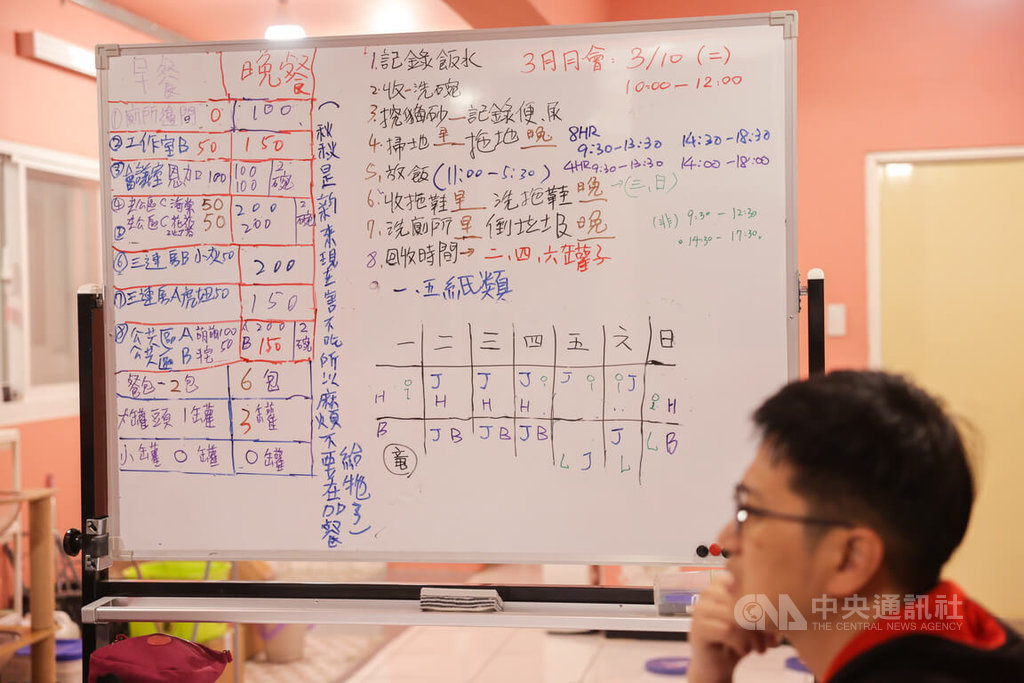 早餐 晚餐
①廁所擋間 0 100
②工作室B 50 150
③會議室 恩加 100 100 100 2碗
④ 公區C 海榮 50 200 2碗
公區C 50 200
⑥三連房B 小灰 50 200
⑦三連房A 虎妞 50 150
⑧公共區A 萌萌 100 A 200 2碗
公共區B 50 B 150
餐包-2包 6包
大罐頭 1罐 3罐
小罐 0罐 0罐
(秋秋是新來現在害不吃所以麻煩不要在加餐
給牠了)
1.記錄飯水
2.收-洗碗
3.挖貓砂-記錄便.尿
4.掃地早 拖地晚
5.放飯(11:00-5:30)
6.收拖鞋早 洗拖鞋晚→(三、日)
7.洗廁所早 倒垃圾晚
8.回收時間→二、四、六罐子
一、五紙類
3月月會: 3/10 (二)
10:00-12:00
8HR
9:30-13:30 14:30-18:30
4HR 9:30-13:30 14:00-18:00
(非) 9:30-12:30
14:30-17:30
一 二 三 四 五 六 日
J J J J J
H H H H H
B J B J B J B J B
L J L L
CNA 中央通訊社
THE CENTRAL NEWS AGENCY